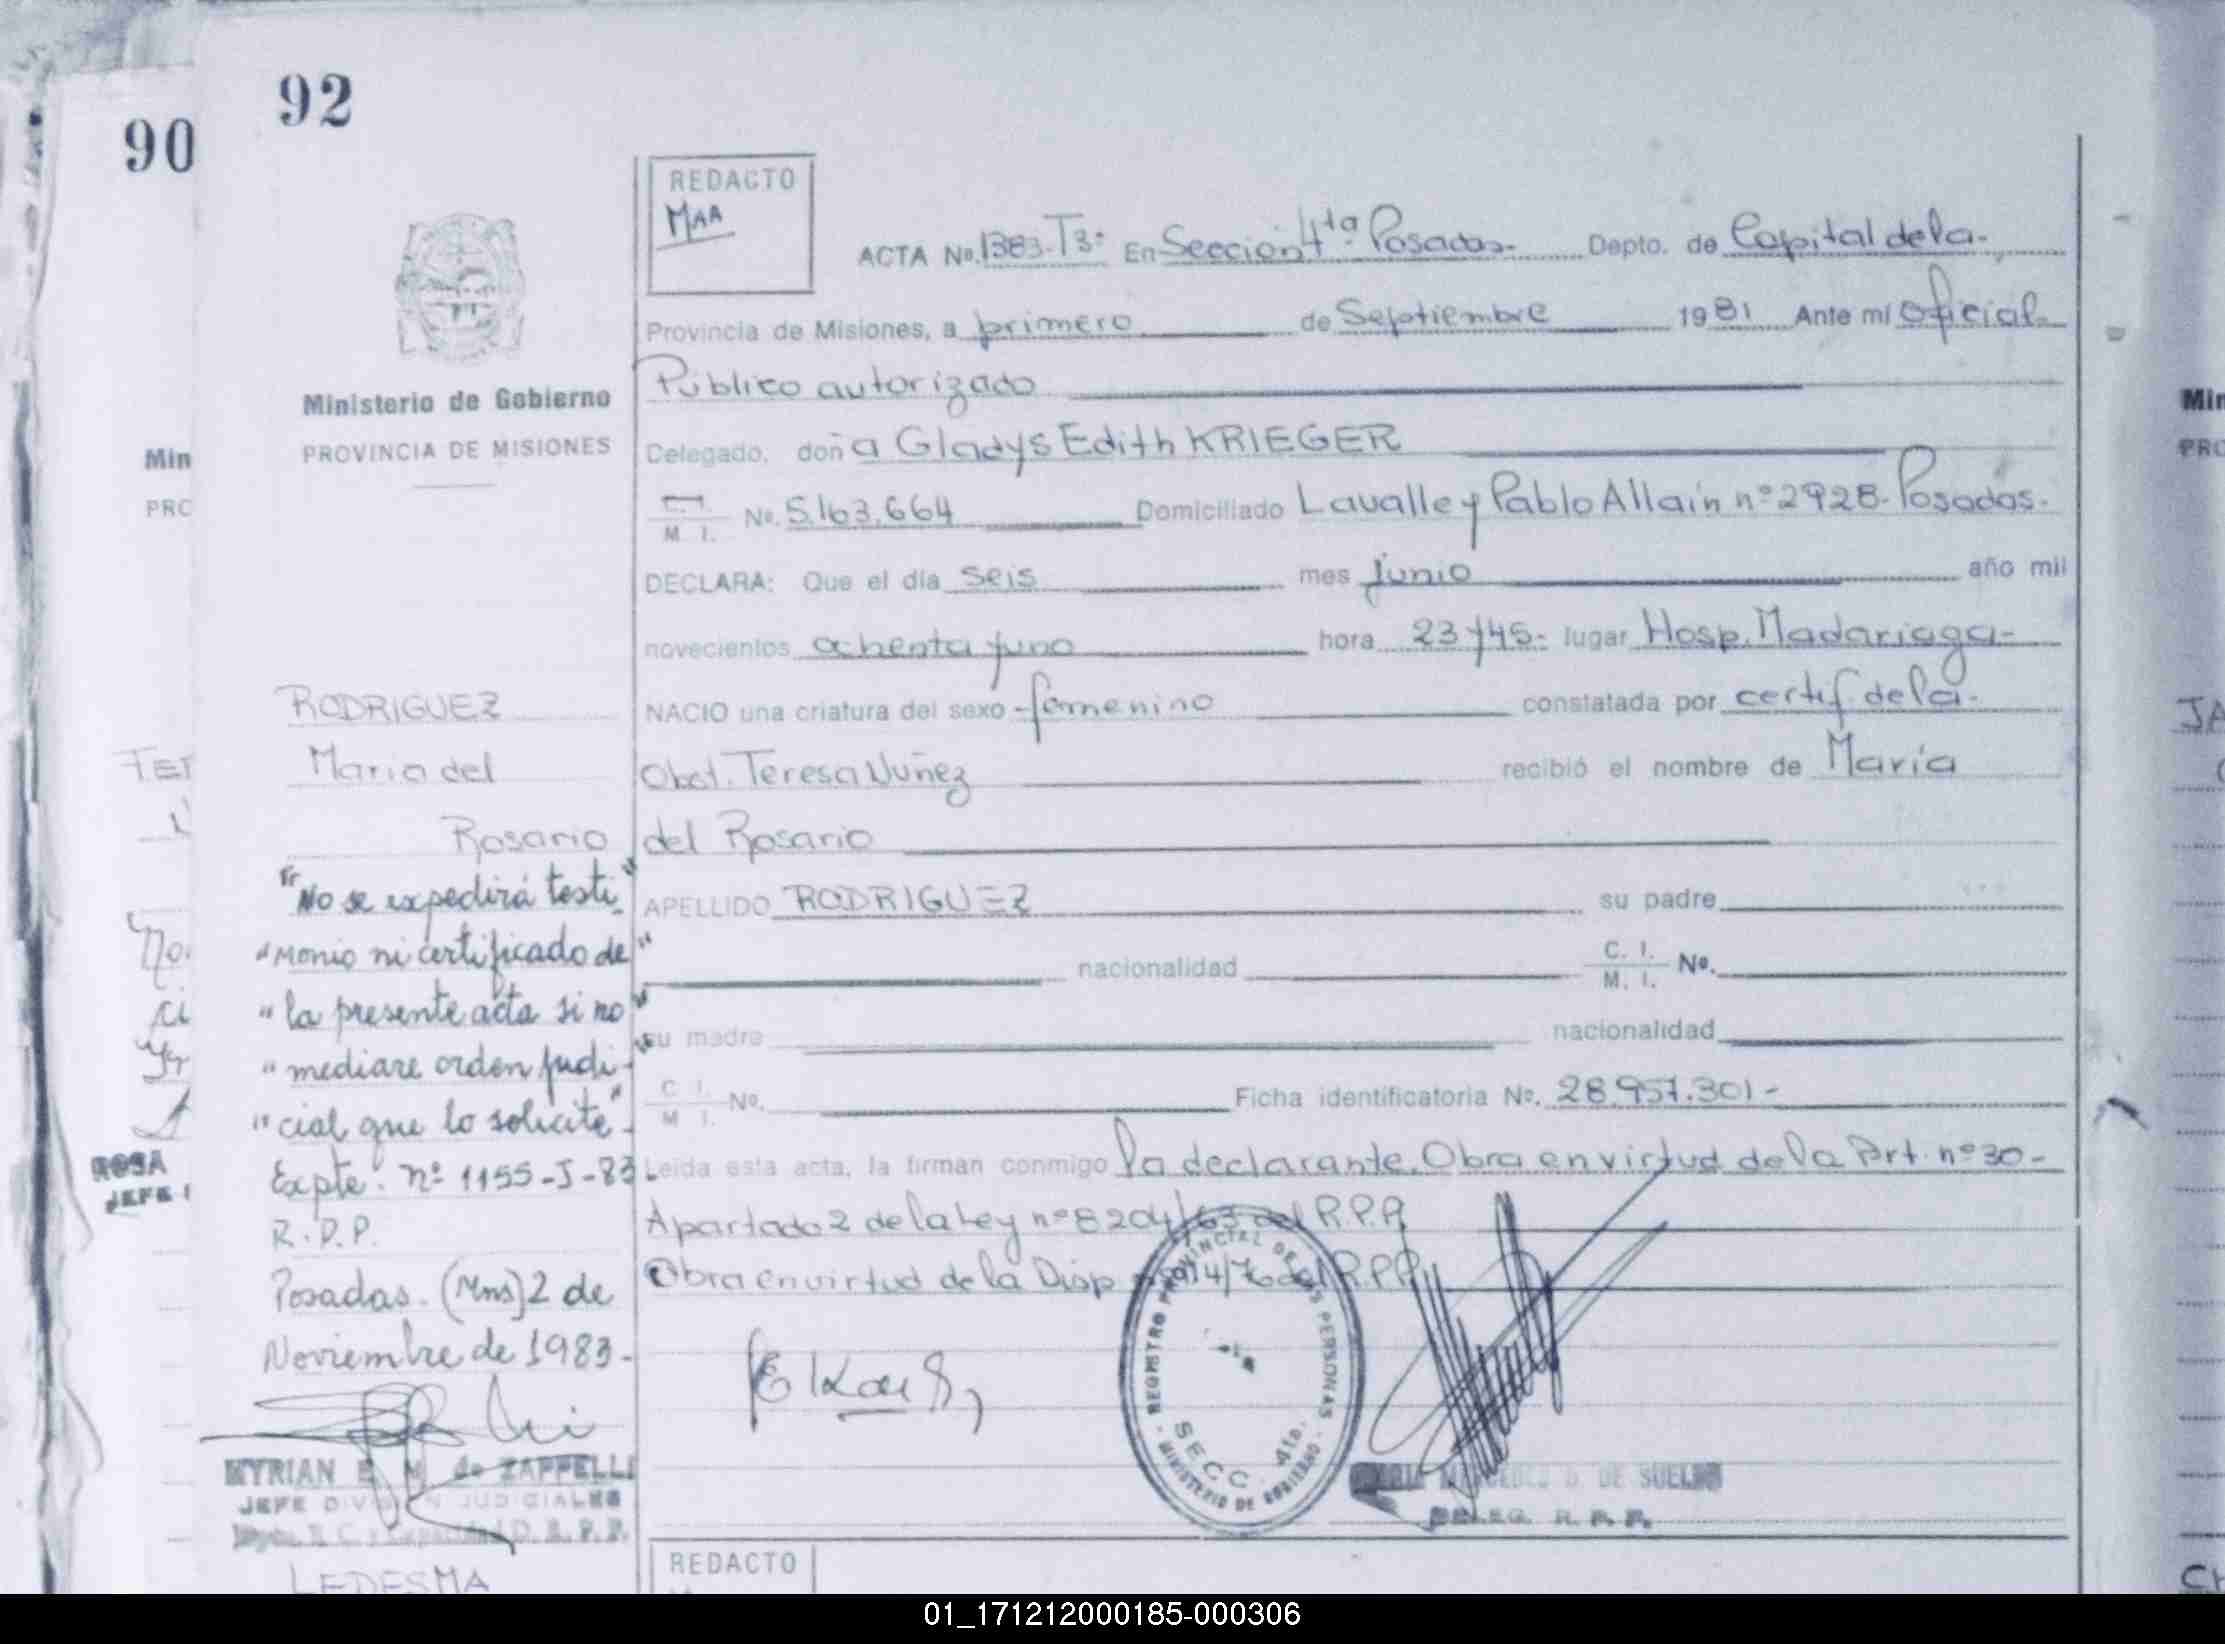 92
90
REDACTO
MAA
ACTA Nº. 1383-T3º En Sección 4ta. Posadas. Depto. de Capital de la
Provincia de Misiones, a primero de Septiembre 1981 Ante mí Oficial
Público autorizado
Ministerio de Gobierno
PROVINCIA DE MISIONES
Delegado, doña Gladys Edith KRIEGER
C. I.
M. I.
Nº. 5.163.664 Domiciliado Lavalle y Pablo Allain nº 2928-Posadas.
DECLARA: Que el día seis mes junio año mil
novecientos ochenta y uno hora 23 y 45- lugar Hosp. Madariaga-
NACIO una criatura del sexo femenino constatada por certif. de la
Obst. Teresa Nuñez recibió el nombre de María
del Rosario
APELLIDO RODRIGUEZ su padre
nacionalidad C. I.
M. I. Nº.
su madre nacionalidad
C. I.
M. I. Nº. Ficha identificatoria Nº. 28.957.301-
Leída esta acta, la firman conmigo la declarante. Obra en virtud de la Art. nº 30-
Apartado 2 de la Ley nº 8204/63 del R.P.P.
Obra en virtud de la Disp. 14/76 del R.P.P.
RODRIGUEZ
Maria del
Rosario
"No se expedirá testi"
"monio ni certificado de"
"la presente acta si no"
"mediare orden judi-"
"cial que lo solicite"-
Expte. nº 1155-J-83
R.P.P.
Posadas. (Mns) 2 de
Noviembre de 1983-
MYRIAN E. M. de ZAPPELLI
JEFE DIVISION JUDICIALES
REGISTRO PROVINCIAL DE LAS PERSONAS
SECC. 4ta.
MINISTERIO DE GOBIERNO
DE SUELDO
DELEG. R. P. P.
REDACTO
LEDESMA
Min
PRO
ROSA
JEFE
Min
PRO
JA
CH
01_171212000185-000306